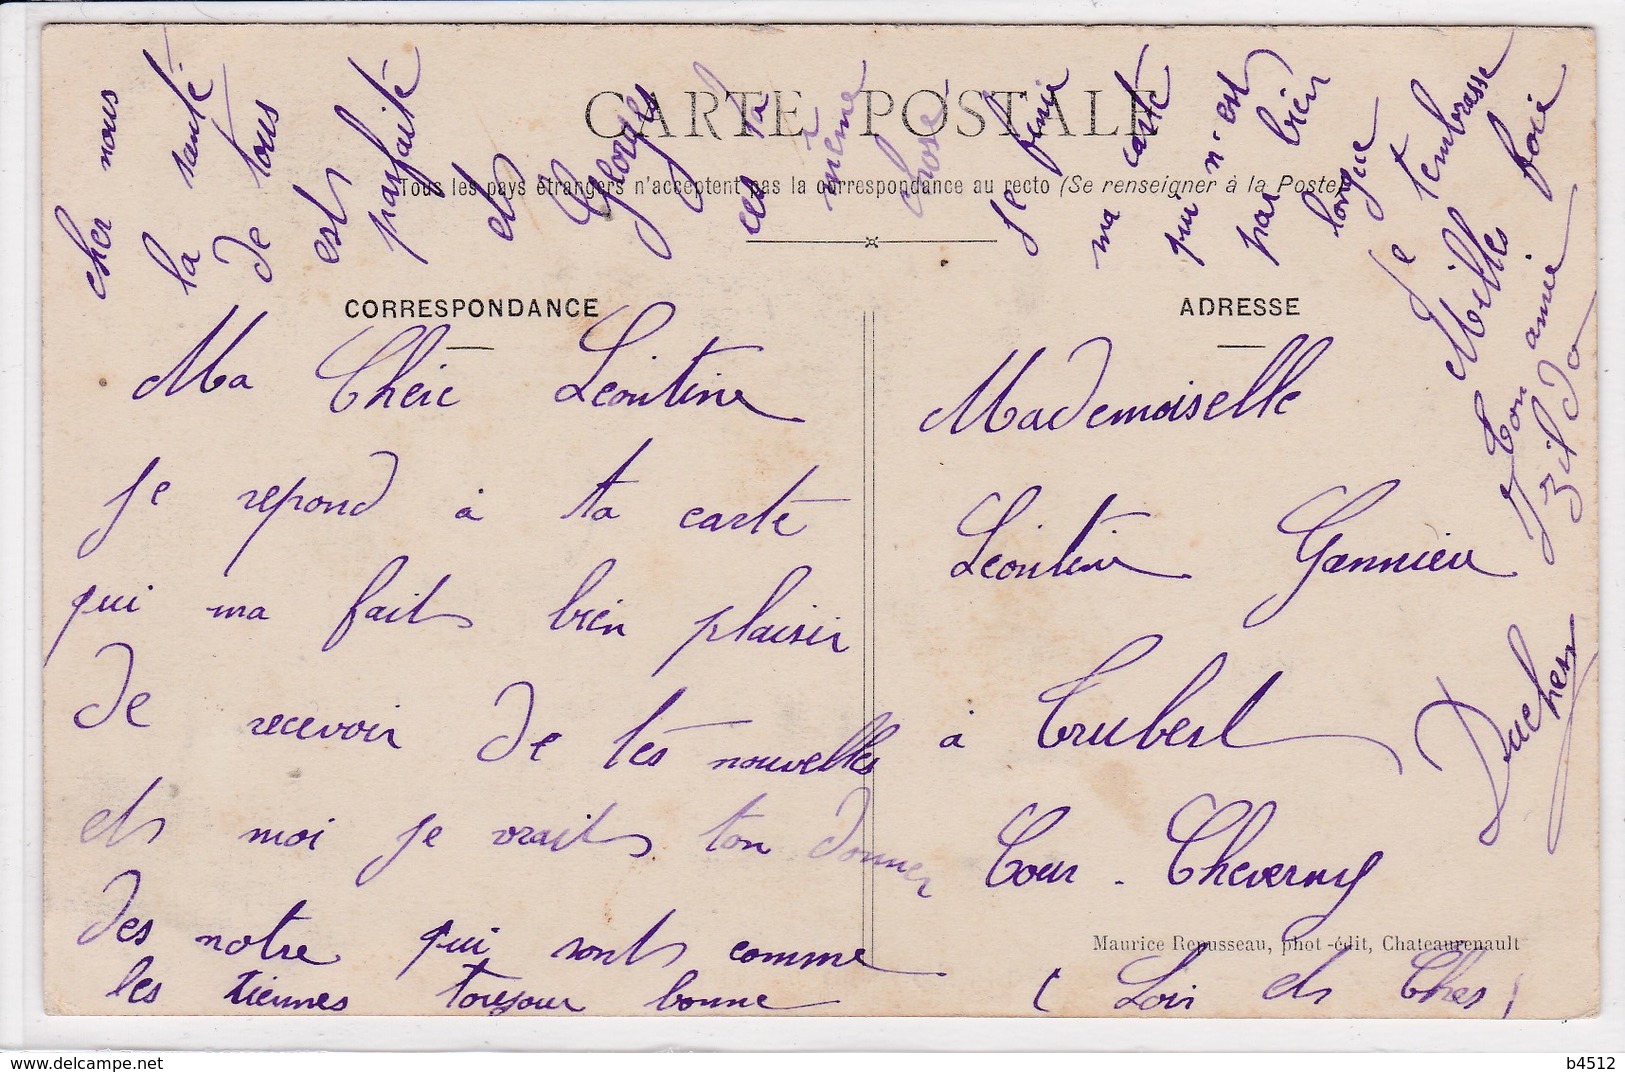 CARTE POSTALE
Tous les pays étrangers n'acceptent pas la correspondance au recto (Se renseigner à la Poste)
CORRESPONDANCE
Ma Cheic Léontine
Je repond à ta carte
qui ma fait bien plaisir
de recevoir de tes nouvelles
et moi je vrait ton donner
des notre qui sont comme
les tiennes toujour bonne
cher nous
la santé
de tous
est
parfaite
et
Georges
ces ta
même
chose
Je fini
ma carte
qui n'est
pas bien
longue
Je tembrasse
Milles fois
Ton amie
Zildo
Duchesn
ADRESSE
Mademoiselle
Léontine Gannieu
à Trubert
Cour-Cheverny
(Loir et Cher)
Maurice Repusseau, phot-édit, Chateaurenault
b4512
https://www.delcampe.net